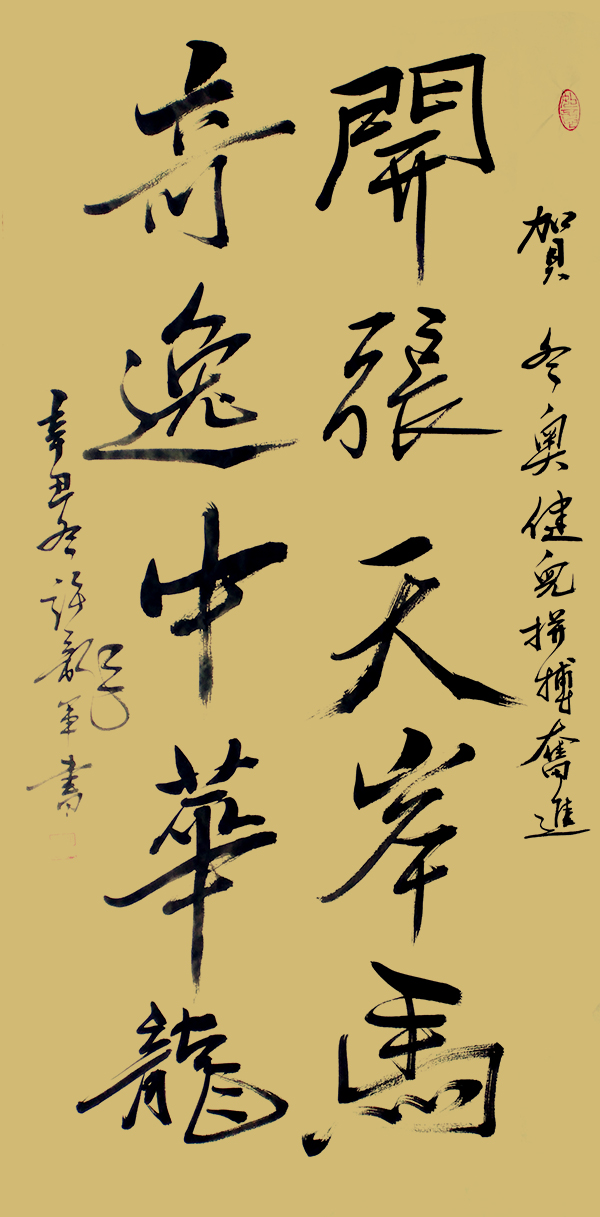 賀 冬奧健兒拼搏奮進
開張天岸馬
奇逸中華龍
辛丑冬許軍書